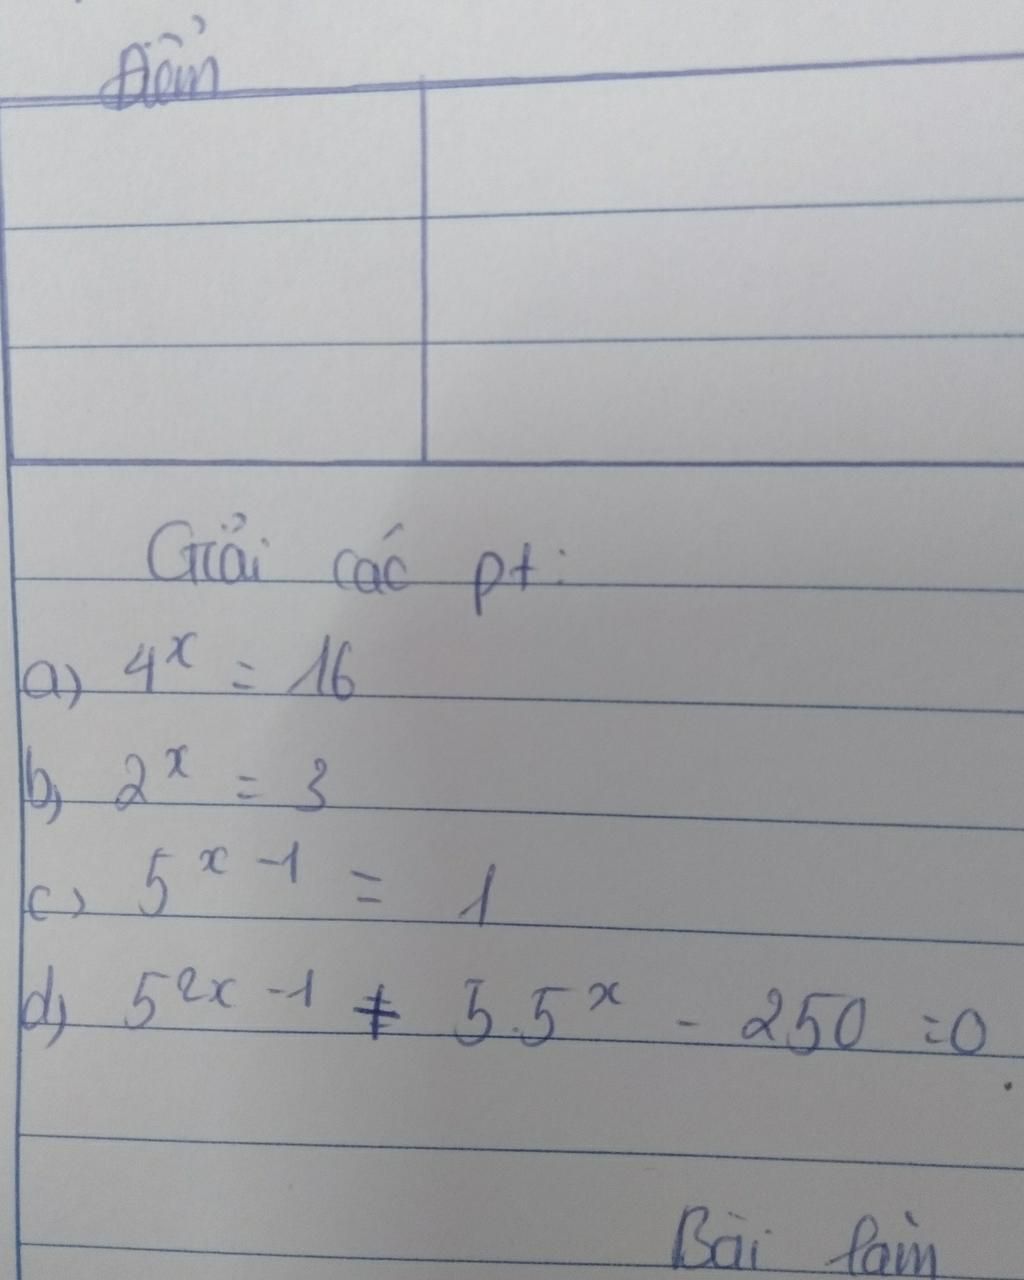 Điểm
Giải các pt:
a) 4^x = 16
b) 2^x = 3
c) 5^{x-1} = 1
d) 5^{2x-1} + 5.5^x - 250 = 0
Bài làm